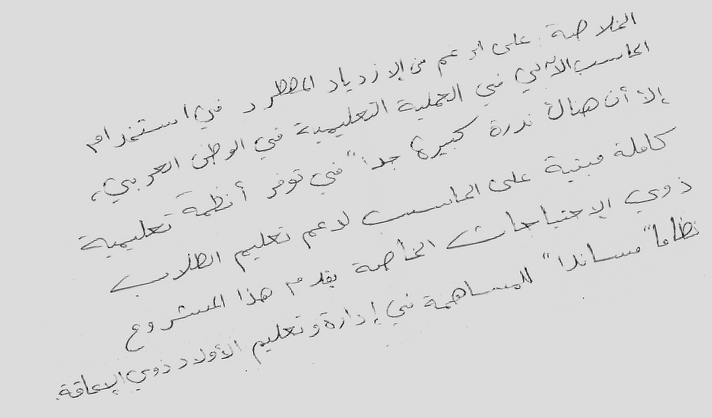 الخلاصة: على الرغم من الازدياد المضطرد في استخدام
الحاسب الآلي في العملية التعليمية في الوطن العربي،
إلا أن هناك ندرة كبيرة جداً في توفر أنظمة تعليمية
كاملة مبنية على الحاسب لدعم تعليم الطلاب
ذوي الإحتياجات الخاصة يقدم هذا المشروع
نظاماً مسانداً للمساهمة في إدارة وتعليم الأولاد ذوي الإعاقة.